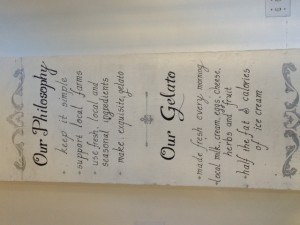 Our Philosophy
keep it simple
support local farms
use fresh, local and
seasonal ingredients
make exquisite gelato
Our Gelato
made fresh every morning
local milk, cream, eggs, cheese,
herbs and fruit
half the fat & calories
of ice cream